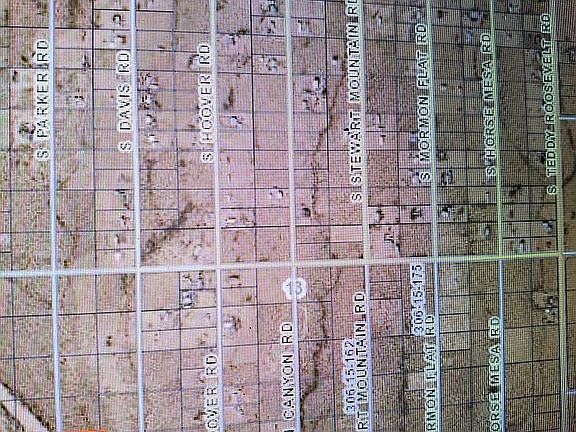 S PARKER RD
S DAVIS RD
S HOOVER RD
S STEWART MOUNTAIN RD
S MORMON FLAT RD
S HORSE MESA RD
S TEDDY ROOSEVELT RD
13
OVER RD
CANYON RD
306-15-162
RT MOUNTAIN RD
306-15-175
RMON FLAT RD
ORSE MESA RD